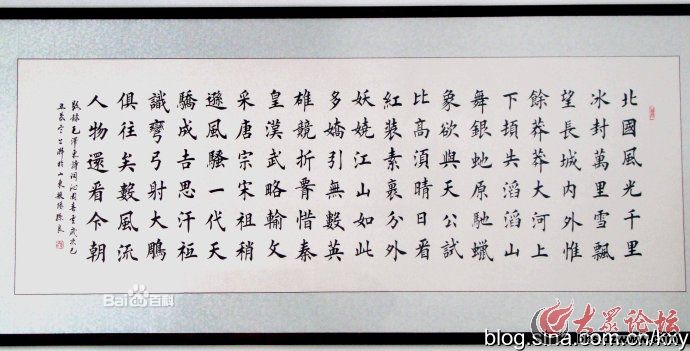 北國風光千里
冰封萬里雪飄
望長城內外惟
餘莽莽大河上
下頓失滔滔山
舞銀虵原馳蠟
象欲與天公試
比高須晴日看
紅裝素裹分外
妖嬈江山如此
多嬌引無數英
雄競折腰惜秦
皇漢武略輸文
采唐宗宋祖稍
遜風騷一代天
驕成吉思汗祗
識彎弓射大鵰
俱往矣數風流
人物還看今朝
敬錄毛澤東詩詞沁園春雪歲次己
丑 於山東 陳良
Bai百科
大众论坛
blog.sina.com.cn/kny